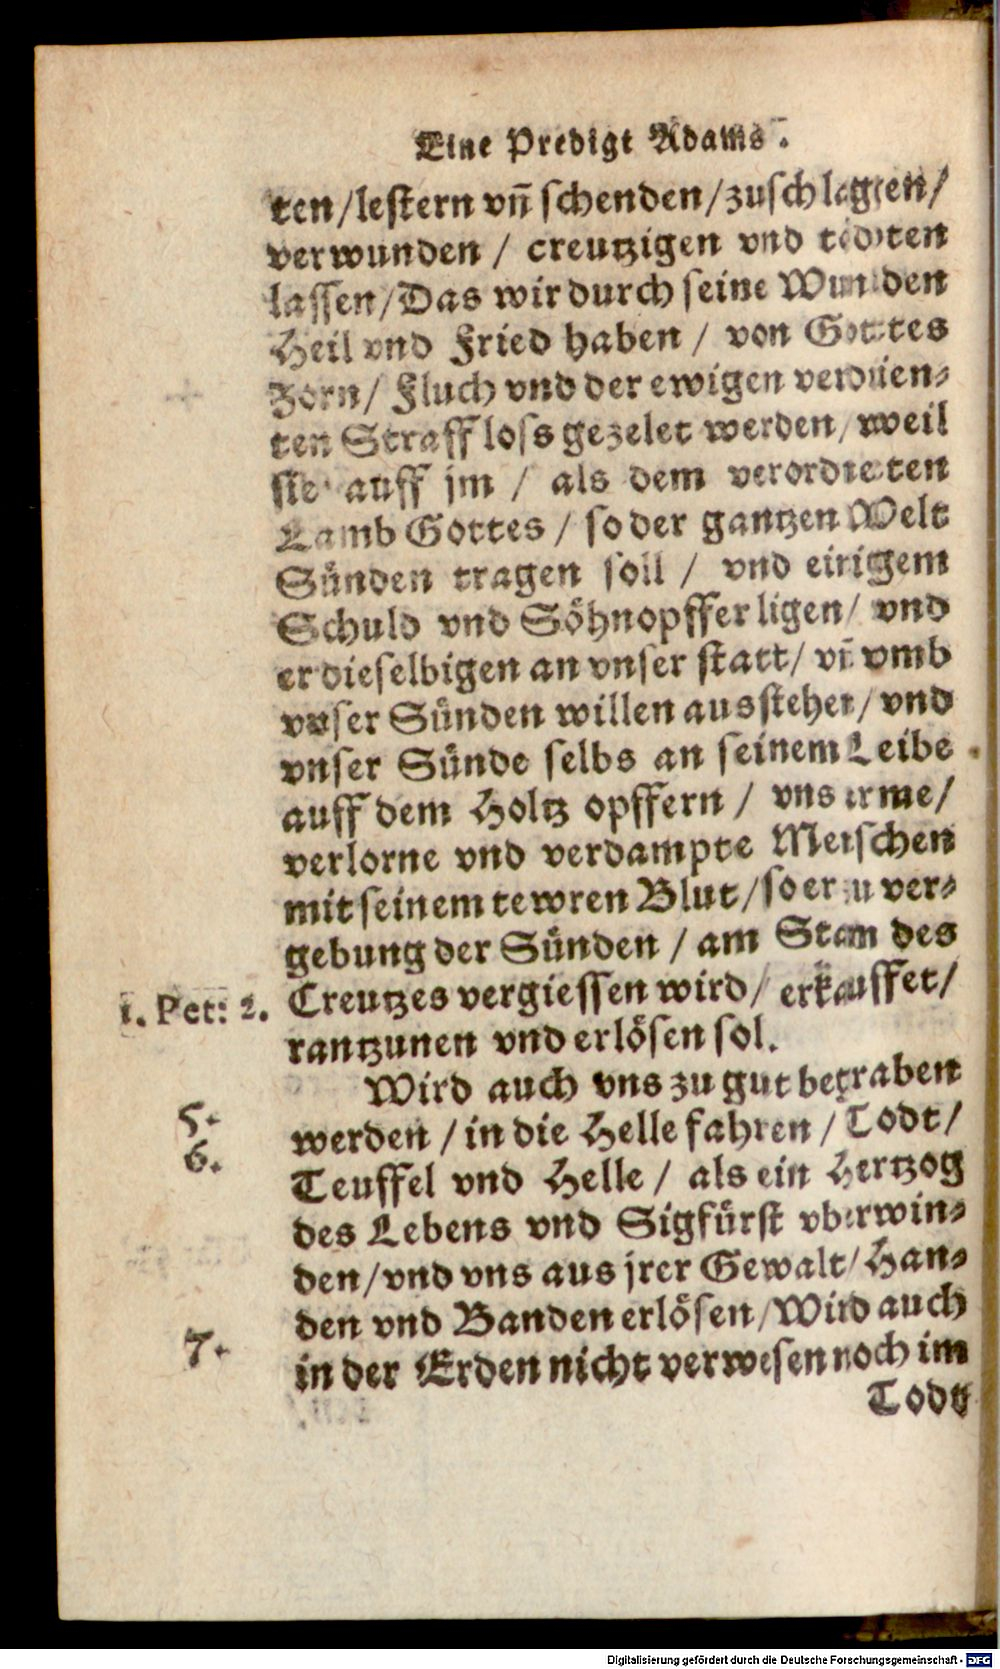 Eine Predigt Adams.
ten/lestern vn̄ schenden/zuschlagen/
verwunden / creutzigen vnd tödten
lassen/Das wir durch seine Wunden
Heil vnd Fried haben / von Gottes
Zorn/ Fluch vnd der ewigen verdien-
ten Straff loss gezelet werden/ weil
sie auff jm / als dem verordneten
Lamb Gottes / so der gantzen Welt
Sünden tragen soll / vnd einigem
Schuld vnd Söhnopffer ligen/ vnd
er dieselbigen an vnser statt/ vn̄ vmb
vnser Sünden willen ausstehet/ vnd
vnser Sünde selbs an seinem Leibe
auff dem Holtz opffern / vns arme/
verlorne vnd verdampte Menschen
mit seinem tewren Blut/so er zu ver-
gebung der Sünden / am Stam des
1. Pet: 2. Creutzes vergiessen wird/ erkauffet/
rantzunen vnd erlösen sol.
Wird auch vns zu gut begraben
5. werden / in die Helle fahren / Todt/
6. Teuffel vnd Helle / als ein Hertzog
des Lebens vnd Sigfürst vberwin-
den/vnd vns aus jrer Gewalt/ Han-
den vnd Banden erlösen/Wird auch
7. in der Erden nicht verwesen noch im
Todt
Digitalisierung gefördert durch die Deutsche Forschungsgemeinschaft - DFG